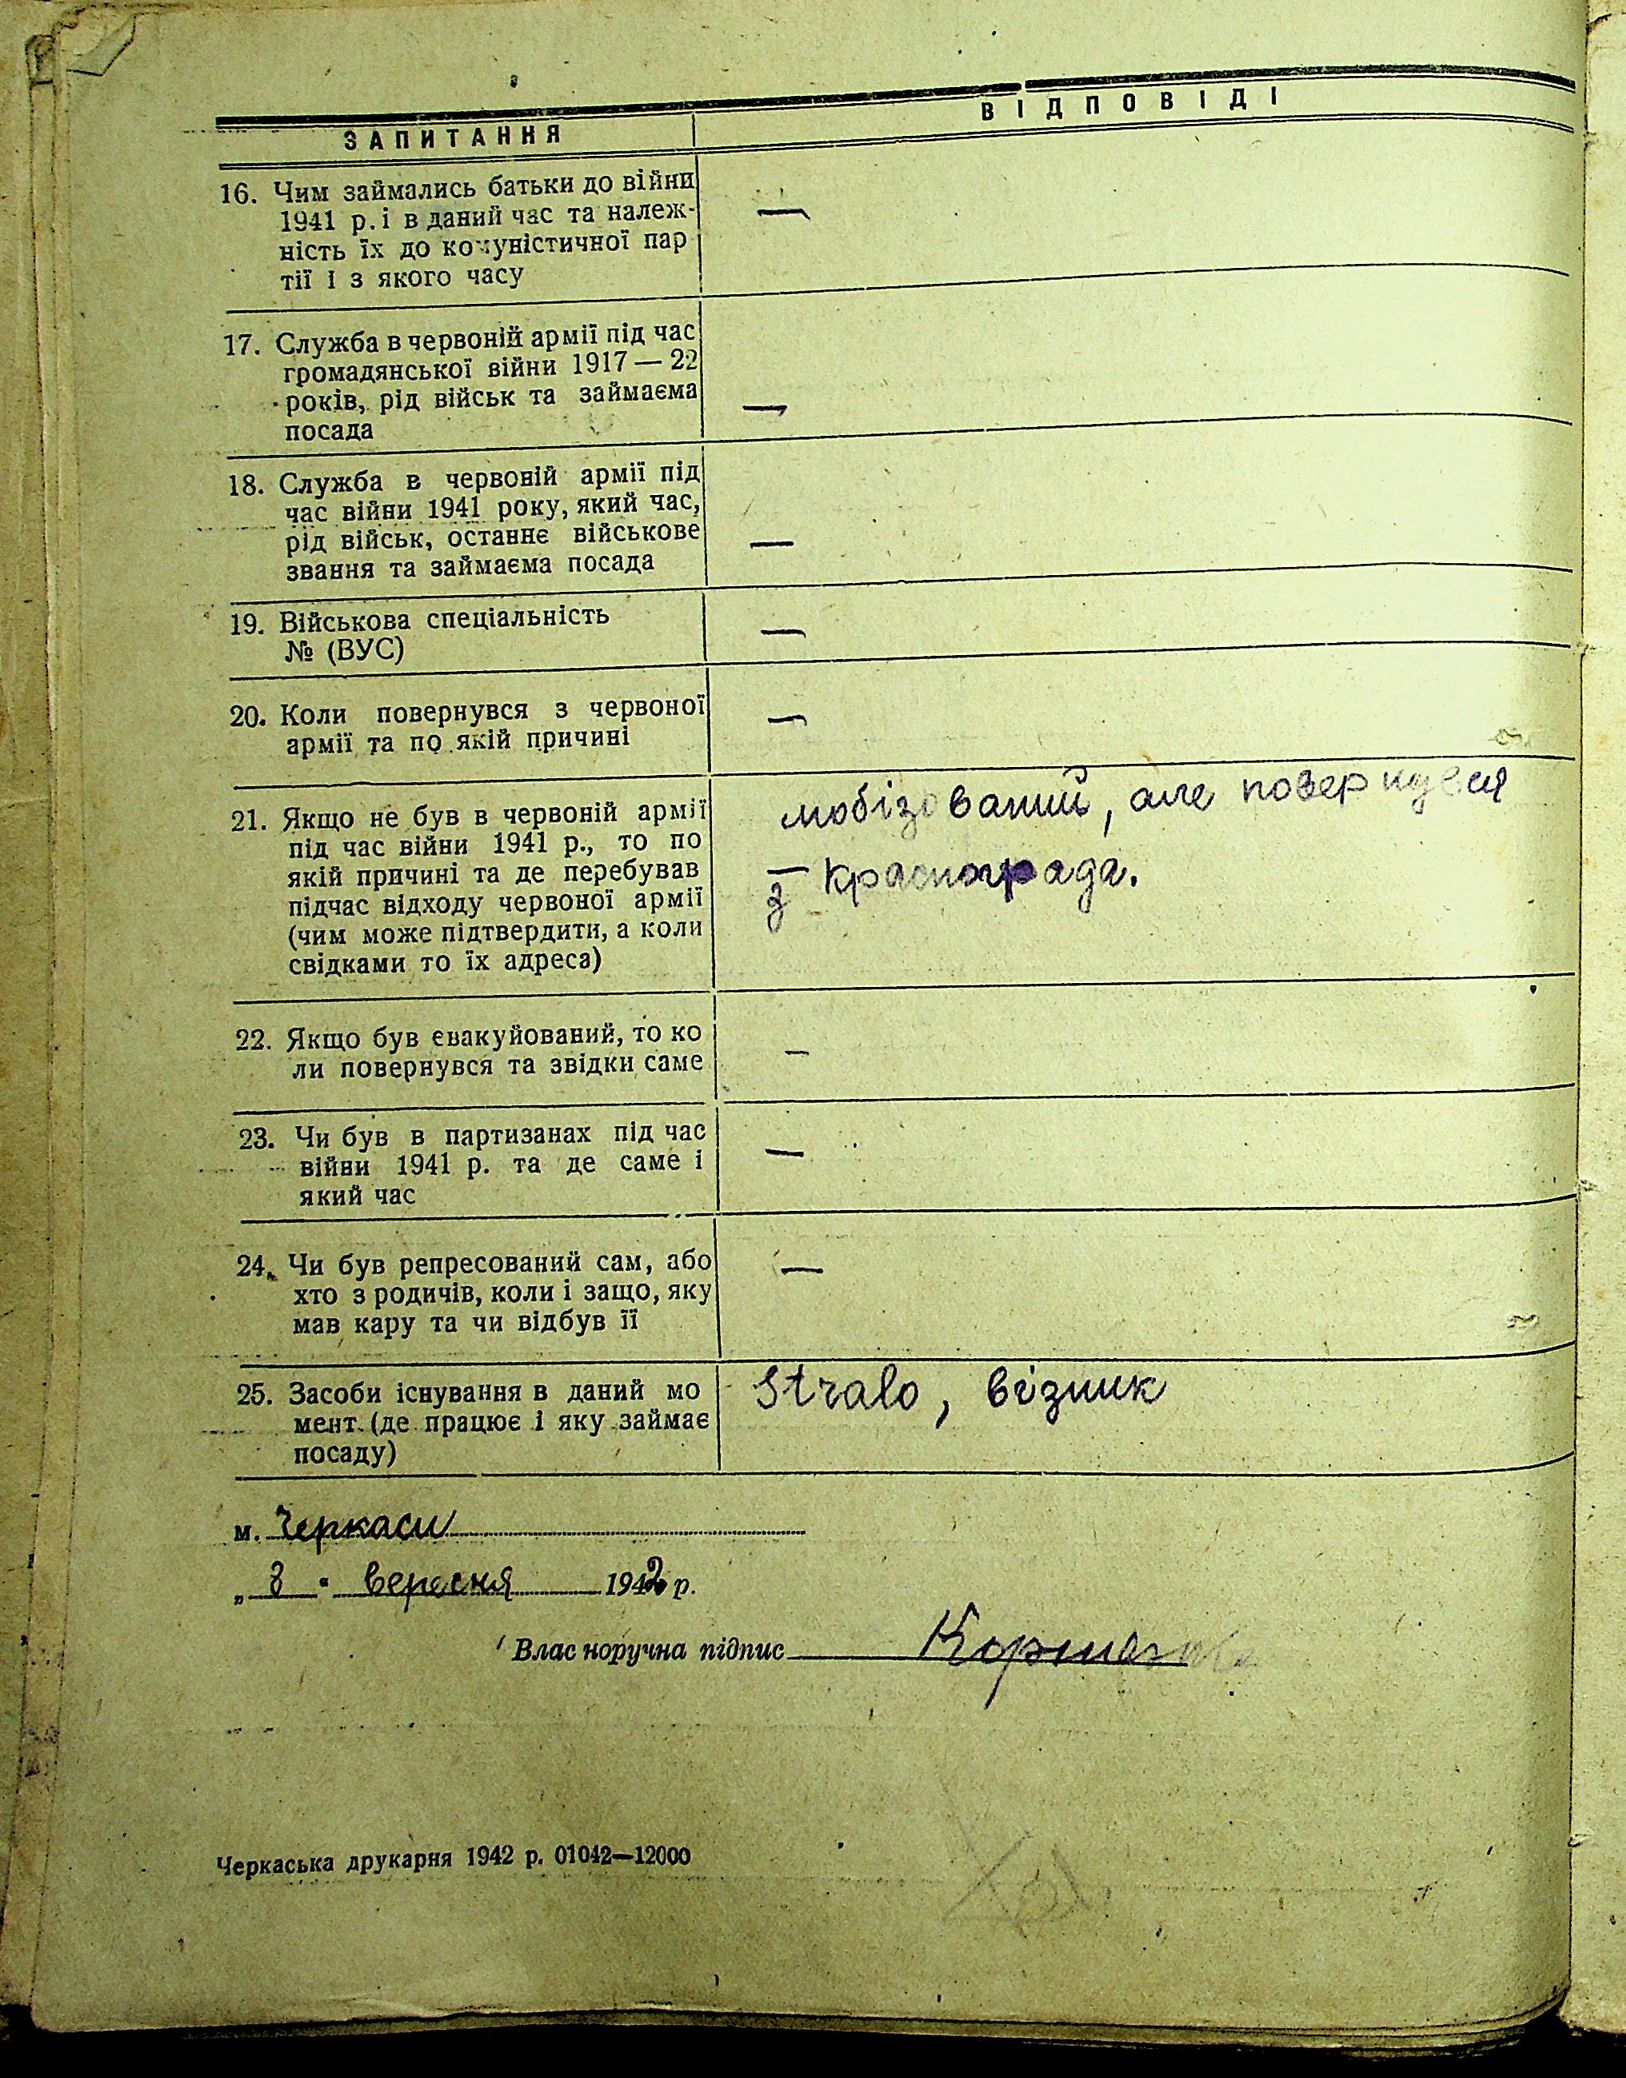 ЗАПИТАННЯ
ВІДПОВІДІ
16. Чим займались батьки до війни
1941 р. і в даний час та належ-
ність їх до комуністичної пар
тії і з якого часу
—
17. Служба в червоній армії під час
громадянської війни 1917 — 22
років, рід військ та займаєма
посада
—
18. Служба в червоній армії під
час війни 1941 року, який час,
рід військ, останнє військове
звання та займаєма посада
—
19. Військова спеціальність
№ (ВУС)
—
20. Коли повернувся з червоної
армії та по якій причині
—
21. Якщо не був в червоній армії
під час війни 1941 р., то по
якій причині та де перебував
підчас відходу червоної армії
(чим може підтвердити, а коли
свідками то їх адреса)
мобізований, але повернувся
з Краснограда.
22. Якщо був евакуйований, то ко
ли повернувся та звідки саме
—
23. Чи був в партизанах під час
війни 1941 р. та де саме і
який час
—
24. Чи був репресований сам, або
хто з родичів, коли і защо, яку
мав кару та чи відбув її
—
25. Засоби існування в даний мо
мент (де працює і яку займає
посаду)
Stralo, візник
м. Черкаси
„ 3 " вересня 1942 р.
Власноручна підпис
Черкаська друкарня 1942 р. 01042—12000